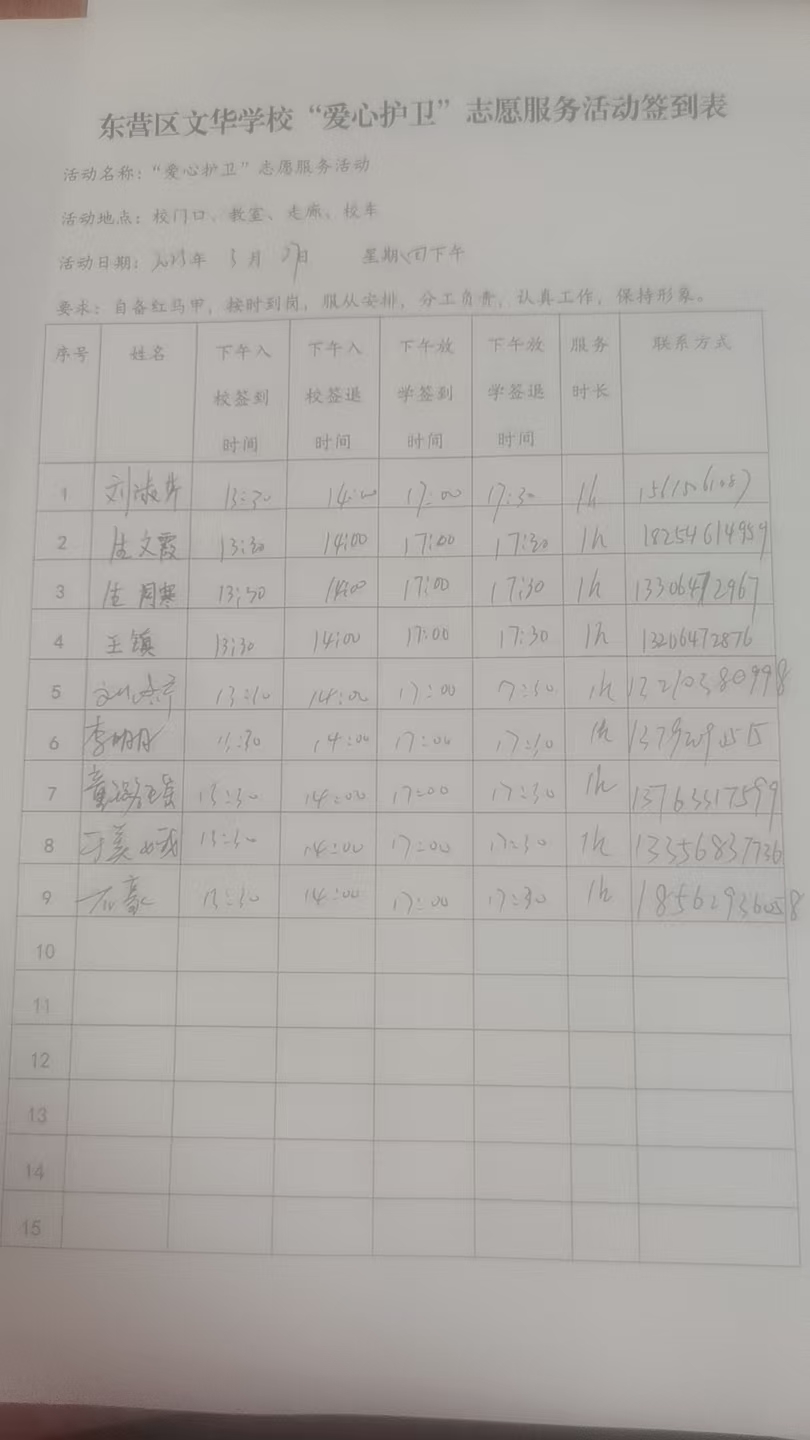 东营区文华学校“爱心护卫”志愿服务活动签到表
活动名称：“爱心护卫”志愿服务活动
活动地点：校门口、教室、走廊、校车
活动日期：2025年 3月 27日 星期四下午
要求：自备红马甲，按时到岗，服从安排，分工负责，认真工作，保持形象。
序号 姓名 下午入校签到时间 下午入校签退时间 下午放学签到时间 下午放学签退时间 服务时长 联系方式
1 13:30 14:00 17:00 17:30 1h
2 文霞 13:30 14:00 17:00 17:30 1h 18254614959
3 13:30 14:00 17:00 17:30 1h 13306472967
4 王镇 13:30 14:00 17:00 17:30 1h 13206472876
5 13:30 14:00 17:00 17:30 1h 13210380998
6 李明月 13:30 14:00 17:00 17:30 1h
7 13:30 14:00 17:00 17:30 1h 13763317599
8 13:30 14:00 17:00 17:30 1h 13356837736
9 石豪 13:30 14:00 17:00 17:30 1h 18562936058
10
11
12
13
14
15